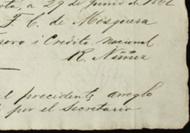 a 29 Junio de 1882
T. C. de Mosquera
i Crédito nacional
R. Núñez
el precedente arreglo
por el Secretario